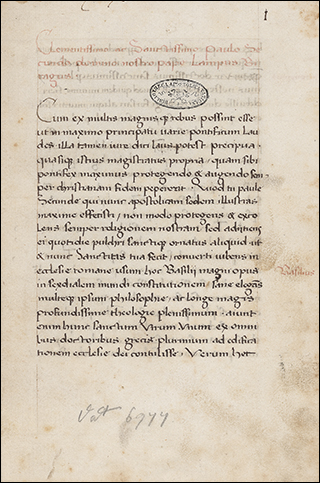 1
Clementissimo ac Sanctissimo Paulo Se
cundo
nostro pape Lampus Bi
ragus
Cum ex multis magnisque rebus possint esse
ut in maximo principatu varie pontificum lau
des illa tamen vire dici laus potest precipua
quasique istius magistratus propria quam sibi
pontifex maximus protegendo & augendo sem
per christianam fidem pepererit Quod tu paule
Secunde qui nunc apostolicam sedem illustras
maxime effecisti non modo protegens & exto
lens semper religionem nostram sed adjiciens
ei quottidie pulchri sanctique ornatus aliquid ut
& nunc Sanctitas tua fecit converti iubens in
ecclesie romane usum hoc Basilij magni opus
in sexdialem mundi constitutionem sane elegans
multeque ipsum philosophie ac longe magis
profundissime theologie plenissimum aiunt
enim hunc sanctum Virum Unum ex omni
bus doctoribus grecis plurimum ad edifica
tionem ecclesie dei contulisse Verum hec
Basilius
Vat 6977